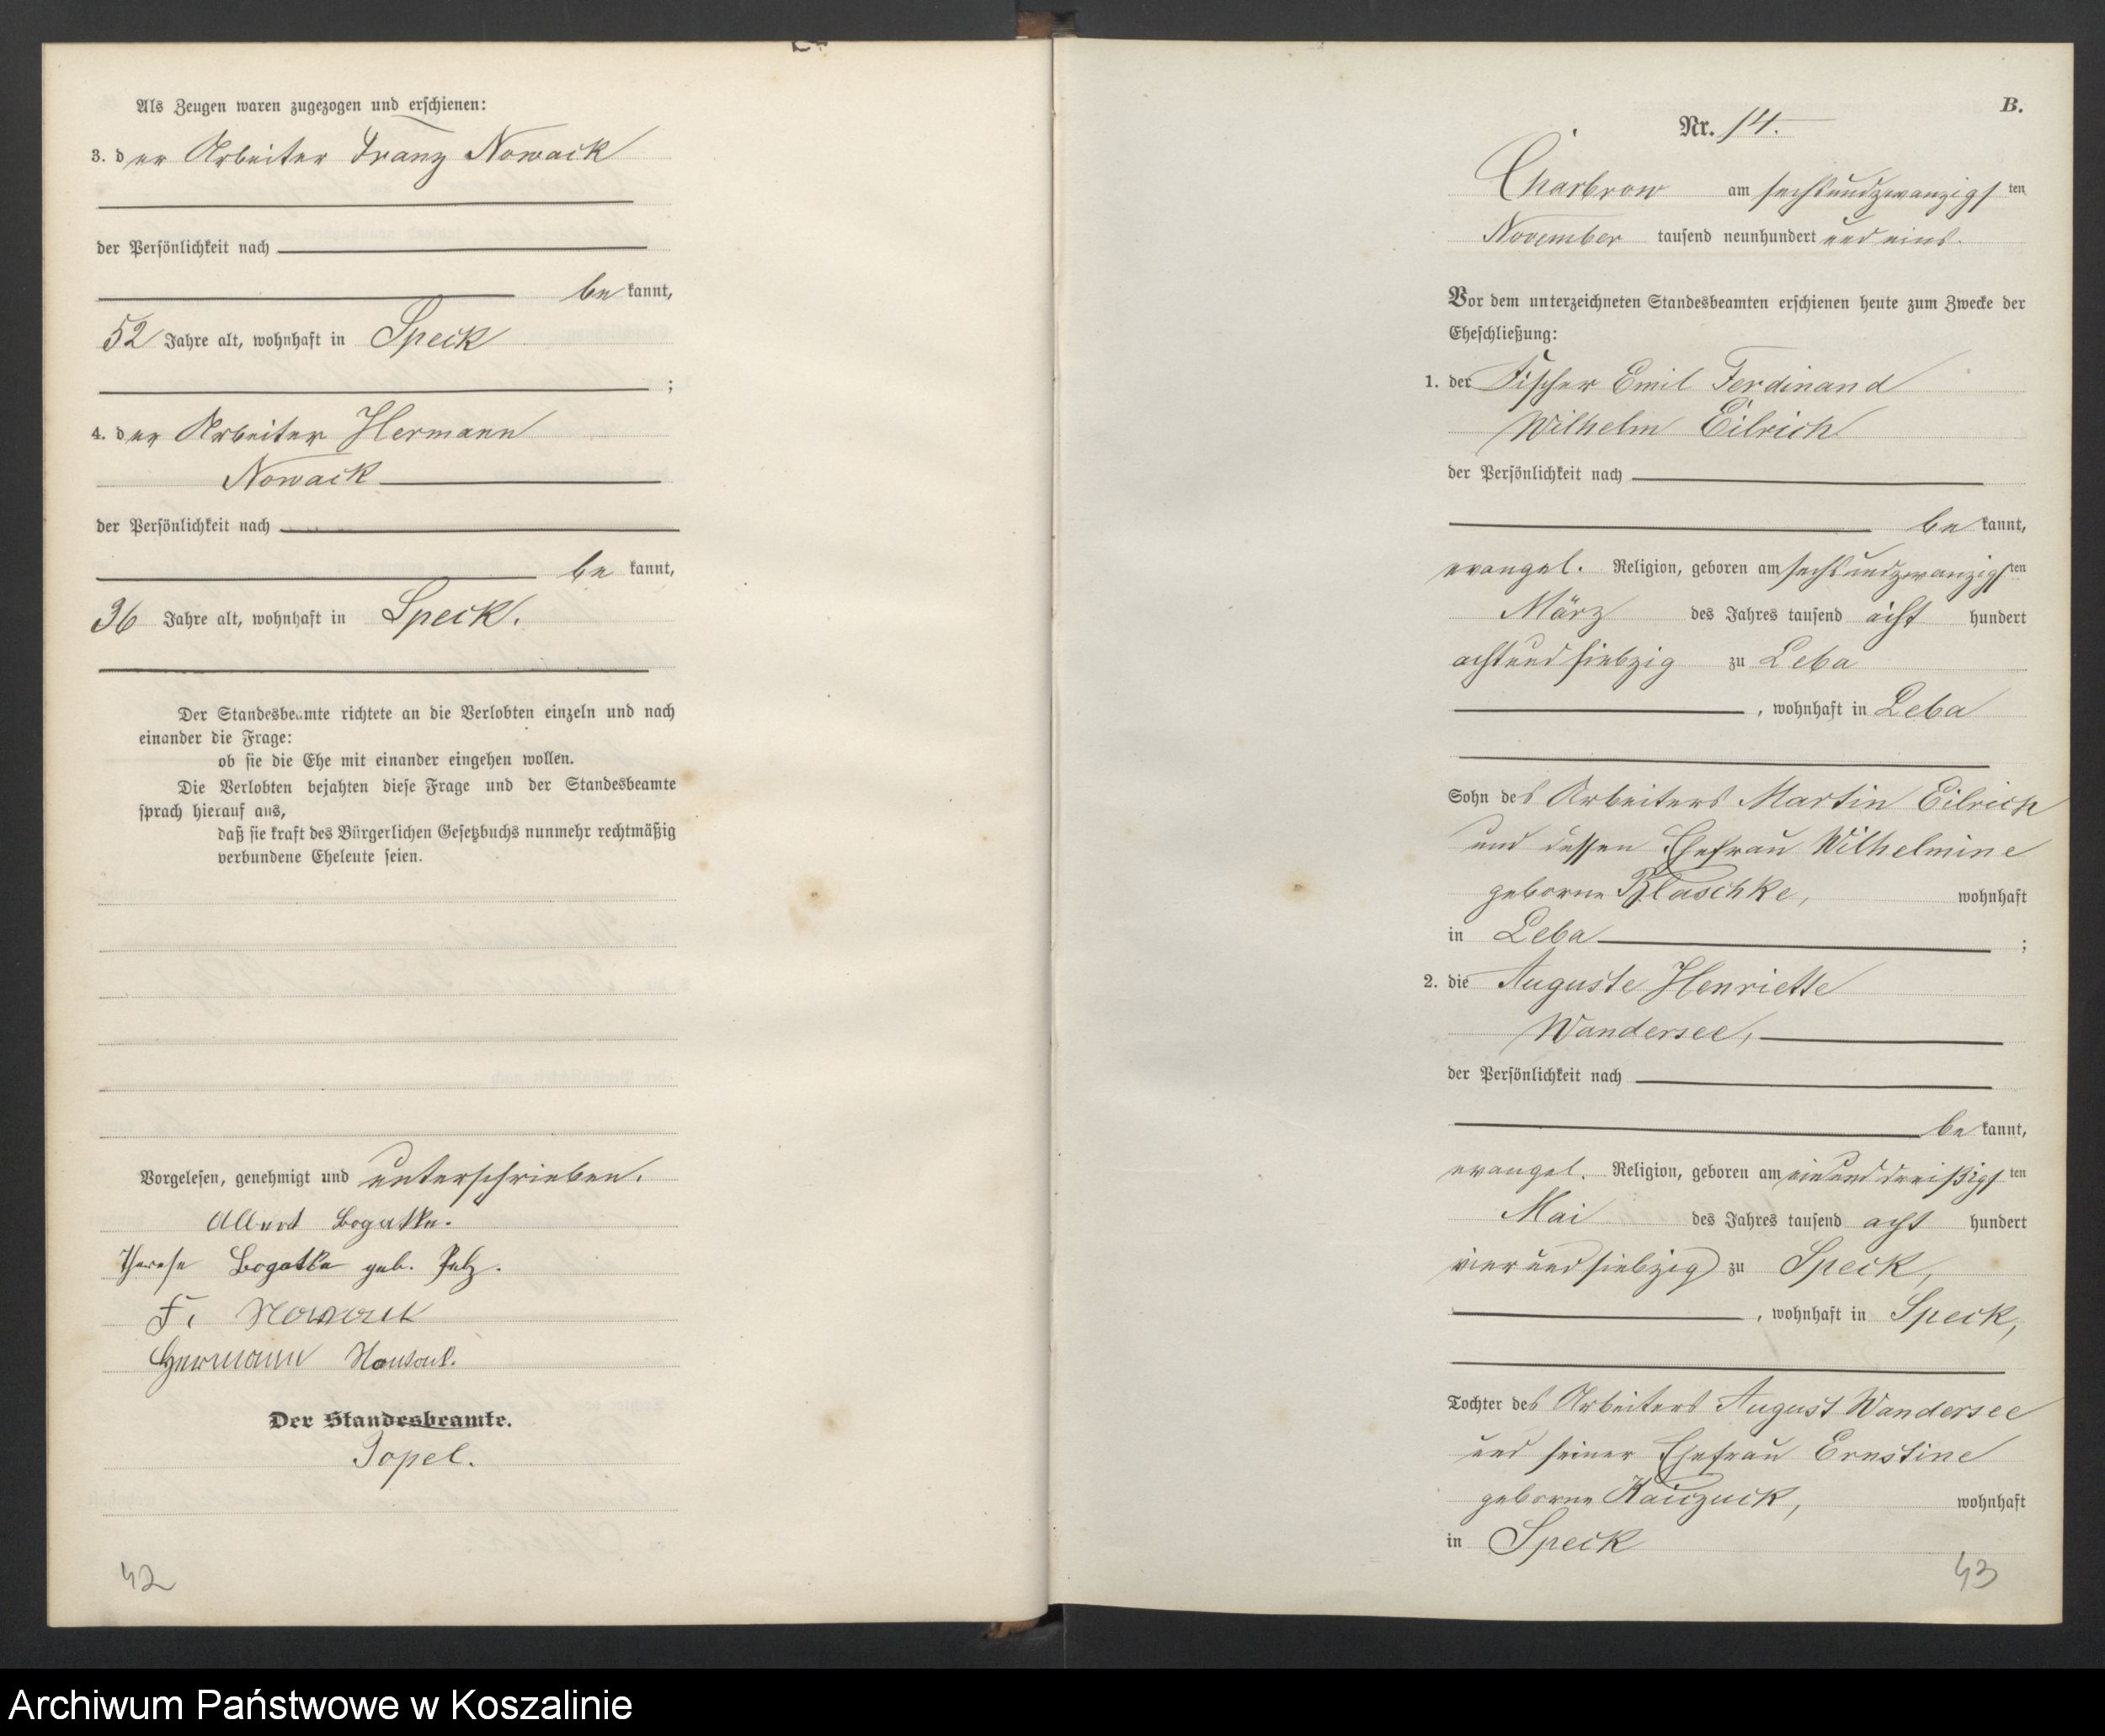 Als Zeugen waren zugezogen und erschienen:
3. der Arbeiter Franz Nowack
der Persönlichkeit nach
be kannt,
52 Jahre alt, wohnhaft in Speck
;
4. der Arbeiter Hermann
Nowack
der Persönlichkeit nach
be kannt,
36 Jahre alt, wohnhaft in Speck.
Der Standesbeamte richtete an die Verlobten einzeln und nach
einander die Frage:
ob sie die Ehe mit einander eingehen wollen.
Die Verlobten bejahten diese Frage und der Standesbeamte
sprach hierauf aus,
daß sie kraft des Bürgerlichen Gesetzbuchs nunmehr rechtmäßig
verbundene Eheleute seien.
Vorgelesen, genehmigt und unterschrieben.
Albert Bogatke.
Therese Bogatke geb. Pelz.
F. Nowack
Hermann Nowack.
Der Standesbeamte.
Popel.
42
B.
Nr. 14.
Charbrow am sechsundzwanzigsten
November tausend neunhundert und eins.
Vor dem unterzeichneten Standesbeamten erschienen heute zum Zwecke der
Eheschließung:
1. der Fischer Emil Ferdinand
Wilhelm Eilrich
der Persönlichkeit nach
be kannt,
evangel. Religion, geboren am sechsundzwanzigsten
März des Jahres tausend acht hundert
achtundsiebzig zu Leba
, wohnhaft in Leba
Sohn des Arbeiters Martin Eilrich
und dessen Ehefrau Wilhelmine
geborne Klaschke, wohnhaft
in Leba ;
2. die Auguste Henriette
Wandersee,
der Persönlichkeit nach
be kannt,
evangel. Religion, geboren am einunddreißigsten
Mai des Jahres tausend acht hundert
vierundsiebzig zu Speck,
, wohnhaft in Speck,
Tochter des Arbeiters August Wandersee
und seiner Ehefrau Ernstine
geborne wohnhaft
in Speck
43
Archiwum Państwowe w Koszalinie